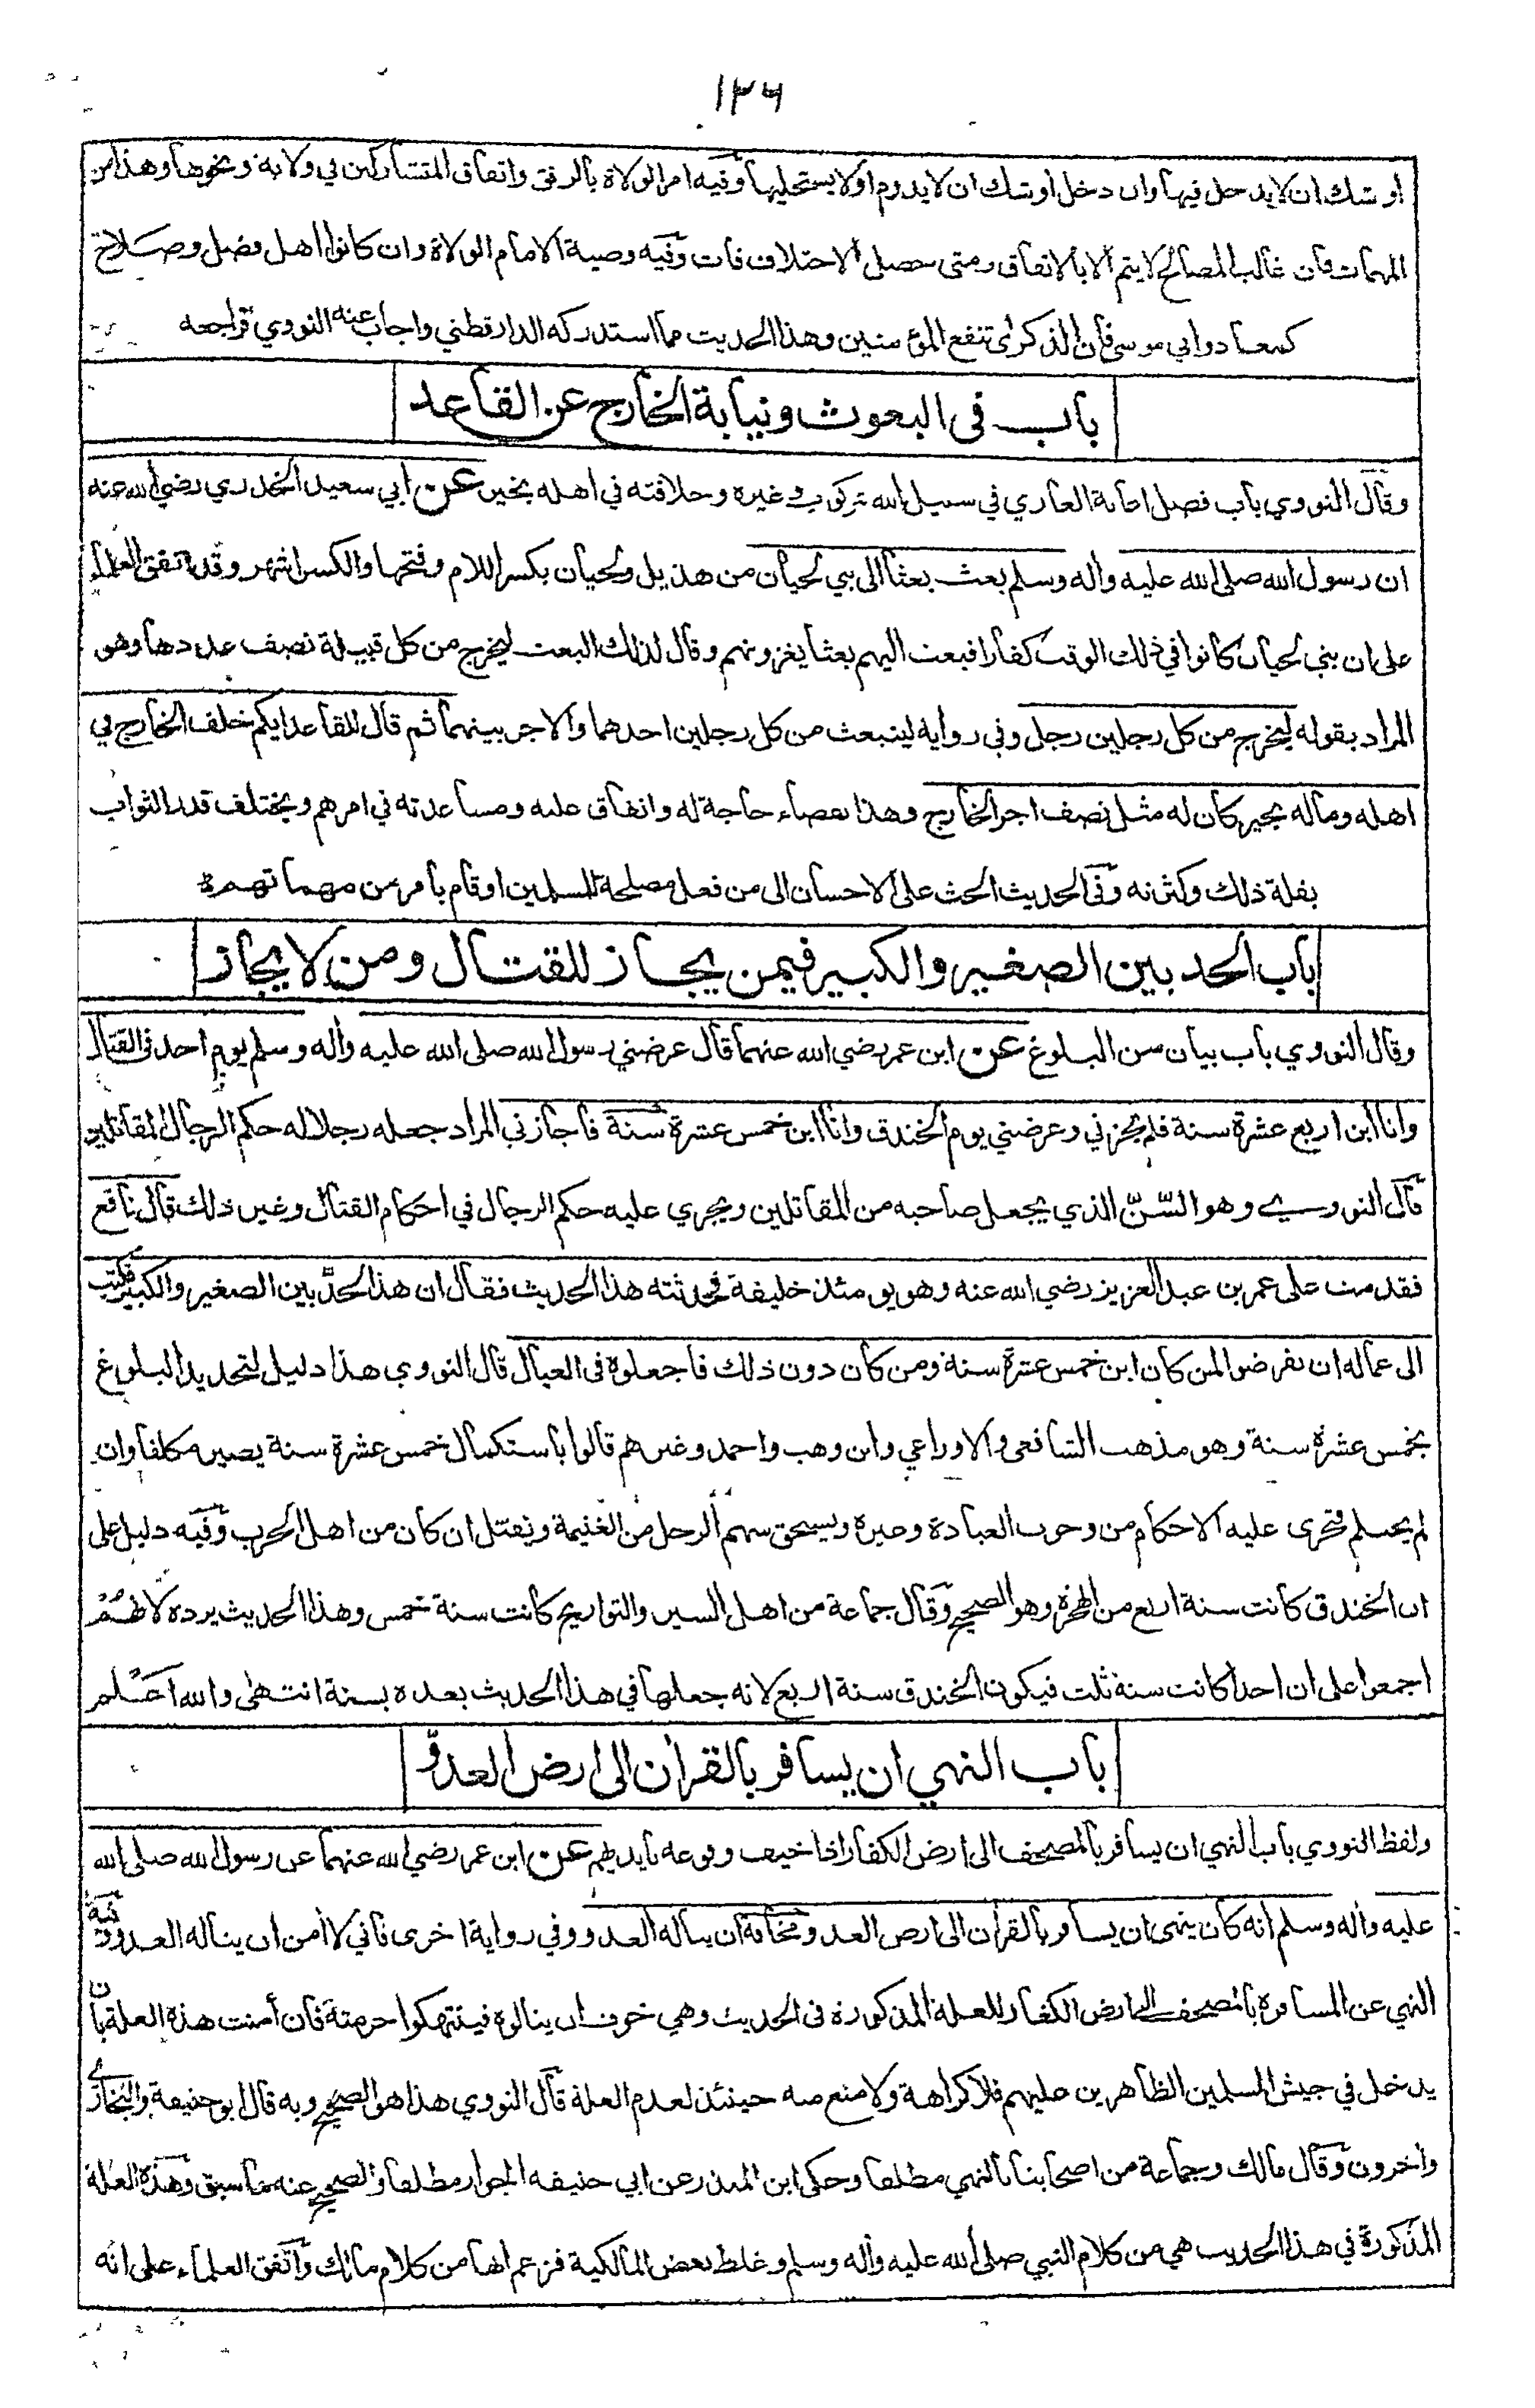 ١٣٦
او شك ان لا يدخل فيها وان دخل اوشك ان لا يدوم او لا يستحليها وفيه امر الولاة بالرفق واتفاق المتشاركين في ولاية ونحوها وهذا من
المهمات فان غالب المصالح لا يتم الا بالاتفاق ومتى حصل الاختلاف فات وفيه وصية الامام الولاة وان كانوا اهل فضل وصلاح
كمعاذ وابي موسى فان الذكرى تنفع المؤمنين وهذا الحديث مما استدركه الدارقطني واجاب عنه النووي فراجعه
باب في البعوث ونيابة الخارج عن القاعد
وقال النووي باب فضل اعانة الغازي في سبيل الله بركوب وغيره وخلافته في اهله بخير عن ابي سعيد الخدري رضي الله عنه
ان رسول الله صلى الله عليه واله وسلم بعث بعثا الى بني لحيان من هذيل ولحيان بكسر اللام وفتحها والكسر اشهر وقد اتفق العلماء
على ان بني لحيان كانوا في ذلك الوقت كفارا فبعث اليهم بعثا يغزونهم وقال لذلك البعث ليخرج من كل قبيلة نصف عددها وهو
المراد بقوله ليخرج من كل رجلين رجل وفي رواية لينبعث من كل رجلين احدهما والاجر بينهما ثم قال للقاعد ايكم خلف الخارج في
اهله وماله بخير كان له مثل نصف اجر الخارج وهذا بقضاء حاجة له وانفاق عليه ومساعدته في امرهم ويختلف قدر الثواب
بقلة ذلك وكثرته وفي الحديث الحث على الاحسان الى من فعل مصلحة المسلمين او قام بامر من مهماتهم
باب الحد بين الصغير والكبير فيمن يجاز للقتال ومن لا يجاز
وقال النووي باب بيان سن البلوغ عن ابن عمر رضي الله عنهما قال عرضني رسول الله صلى الله عليه واله وسلم يوم احد في القتال
وانا ابن اربع عشرة سنة فلم يجزني وعرضني يوم الخندق وانا ابن خمس عشرة سنة فاجازني المراد جعله رجلا له حكم الرجال المقاتلين
قال النووي وهو السّنّ الذي يجعل صاحبه من المقاتلين ويجري عليه حكم الرجال في احكام القتال وغير ذلك قال نافع
فقدمت على عمر بن عبد العزيز رضي الله عنه وهو يومئذ خليفة فحدثته هذا الحديث فقال ان هذا الحدّ بين الصغير والكبير فكتب
الى عماله ان يفرضوا لمن كان ابن خمس عشرة سنة ومن كان دون ذلك فاجعلوه في العيال قال النووي هذا دليل لتحديد البلوغ
بخمس عشرة سنة وهو مذهب الشافعي والاوزاعي وابن وهب واحمد وغيرهم قالوا باستكمال خمس عشرة سنة يصير مكلفا وان
لم يحتلم فتجرى عليه الاحكام من وجوب العبادة وغيره ويستحق سهم الرجل من الغنيمة ويقتل ان كان من اهل الحرب وفيه دليل على
ان الخندق كانت سنة اربع من الهجرة وهو الصحيح وقال جماعة من اهل السير والتواريخ كانت سنة خمس وهذا الحديث يرده لانهم
اجمعوا على ان احدا كانت سنة ثلث فيكون الخندق سنة اربع لانه جعلها في هذا الحديث بعده بسنة انتهى والله اعلم
باب النهي ان يسافر بالقران الى ارض العدوّ
ولفظ النووي باب النهي ان يسافر بالمصحف الى ارض الكفار اذا خيف وقوعه بايديهم عن ابن عمر رضي الله عنهما عن رسول الله صلى الله
عليه واله وسلم انه كان ينهى ان يسافر بالقران الى ارض العدو مخافة ان يناله العدو وفي رواية اخرى فاني لا أمن ان يناله العدو وفيه
النهي عن المسافرة بالمصحف الى ارض الكفار للعلة المذكورة في الحديث وهي خوف ان ينالوه فينتهكوا حرمته فان أمنت هذه العلة بان
يدخل في جيش المسلمين الظاهرين عليهم فلا كراهة ولا منع منه حينئذ لعدم العلة قال النووي هذا هو الصحيح وبه قال ابو حنيفة والبخاري
واخرون وقال مالك وجماعة من اصحابنا بالنهي مطلقا وحكى ابن المنذر عن ابي حنيفة الجواز مطلقا والصحيح عنه ما سبق وهذه العلة
المذكورة في هذا الحديث هي من كلام النبي صلى الله عليه واله وسلم وغلط بعض المالكية فزعم انها من كلام مالك واتفق العلماء على انه